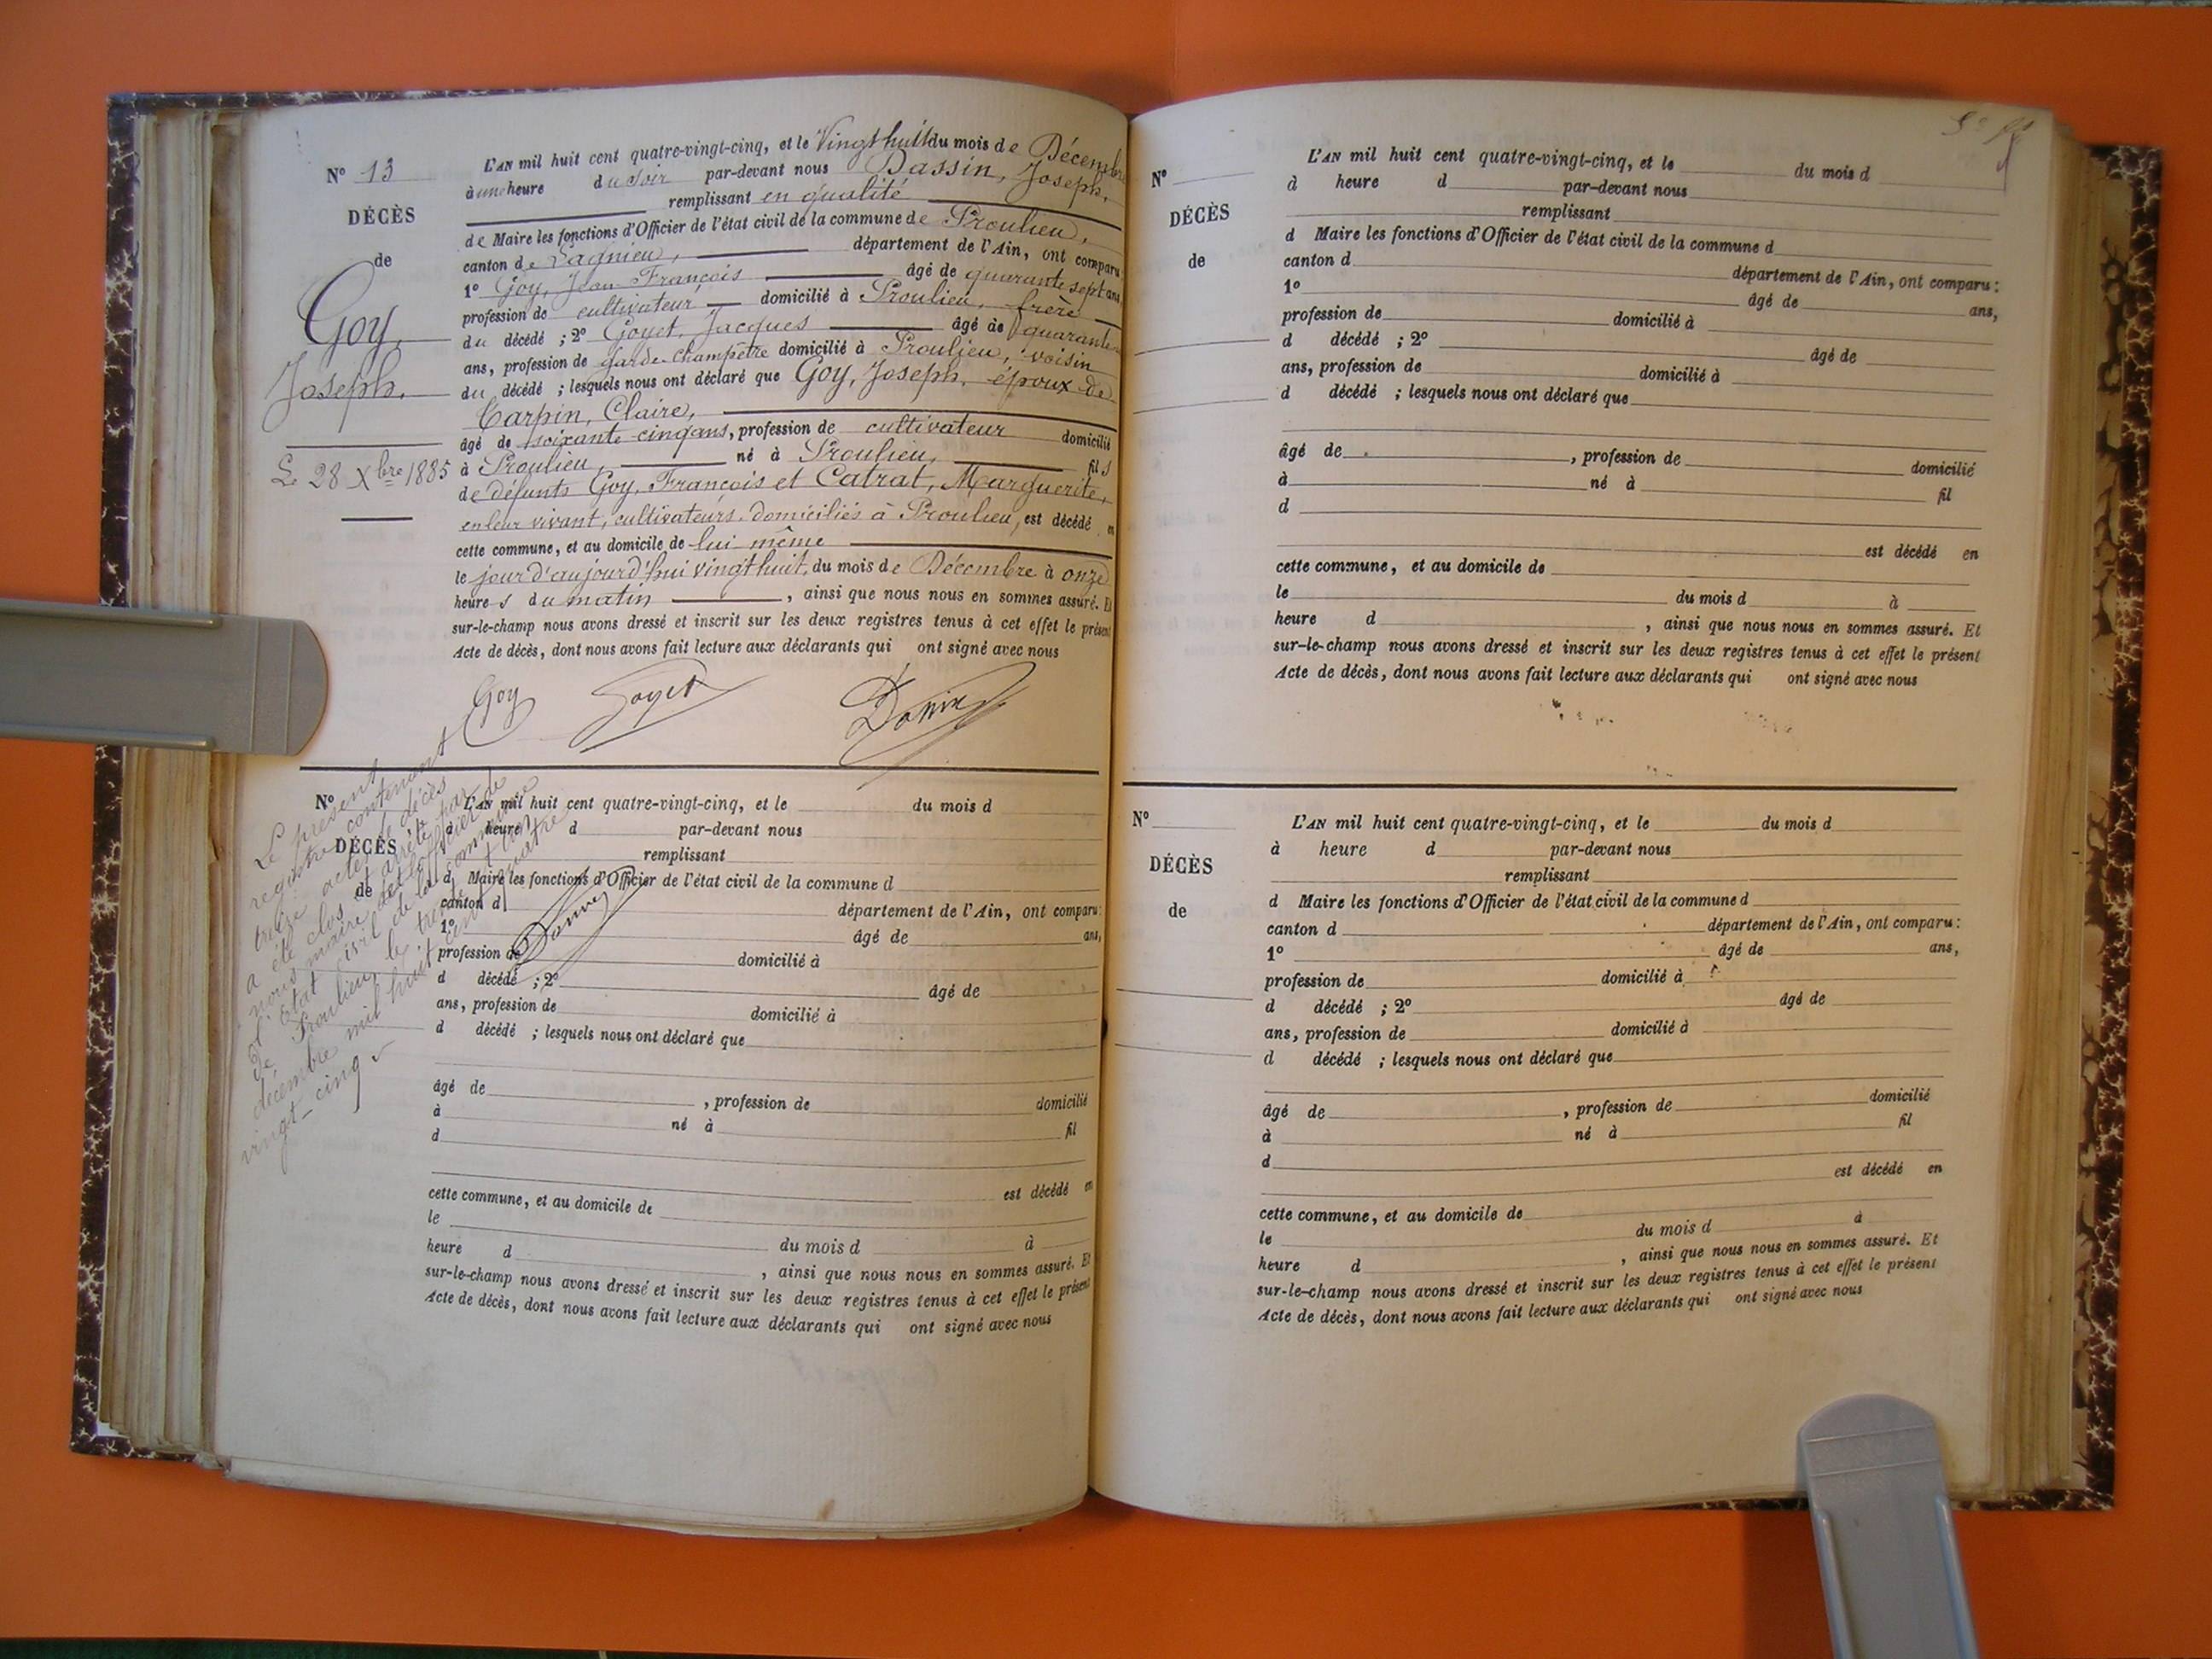 N° 13
DÉCÈS
de
Goy,
Joseph.
Le 28 Xbre 1885
L'AN mil huit cent quatre-vingt-cinq, et le Vingt huit du mois de Décembre
à une heure du soir par-devant nous Dassin, Joseph,
remplissant en qualité
de Maire les fonctions d'Officier de l'état civil de la commune de Proulieu,
canton de Lagnieu, département de l'Ain, ont comparu:
1° Goy, Jean François âgé de quarante sept ans,
profession de cultivateur domicilié à Proulieu, frère
du décédé ; 2° Goyet, Jacques âgé de quarante
ans, profession de garde-champêtre domicilié à Proulieu, voisin
du décédé ; lesquels nous ont déclaré que Goy, Joseph, époux de
Carpin, Claire,
âgé de soixante-cinq ans, profession de cultivateur domicilié
à Proulieu, né à Proulieu, fils
de défunts Goy, François et Catrat, Marguerite,
en leur vivant, cultivateurs domiciliés à Proulieu, est décédé en
cette commune, et au domicile de lui-même
le jour d'aujourd'hui vingt huit, du mois de Décembre à onze
heures du matin , ainsi que nous nous en sommes assuré. Et
sur-le-champ nous avons dressé et inscrit sur les deux registres tenus à cet effet le présent
Acte de décès, dont nous avons fait lecture aux déclarants qui ont signé avec nous
Goy Goyet Dassin
Le présent
registre contenant
treize actes de décès
a été clos et arrêté par
nous maire et officier de
l'Etat civil de la commune
de Proulieu, le trente et un
décembre mil huit cent quatre
vingt-cinq
N°
DÉCÈS
de
L'AN mil huit cent quatre-vingt-cinq, et le du mois d
à heure d par-devant nous
remplissant
d Maire les fonctions d'Officier de l'état civil de la commune d
canton d département de l'Ain, ont comparu:
1° âgé de ans,
profession de domicilié à
d décédé ; 2° âgé de
ans, profession de domicilié à
d décédé ; lesquels nous ont déclaré que
âgé de , profession de domicilié
à né à fil
d
est décédé en
cette commune, et au domicile de
le du mois d à
heure d , ainsi que nous nous en sommes assuré. Et
sur-le-champ nous avons dressé et inscrit sur les deux registres tenus à cet effet le présent
Acte de décès, dont nous avons fait lecture aux déclarants qui ont signé avec nous
N°
DÉCÈS
de
L'AN mil huit cent quatre-vingt-cinq, et le du mois d
à heure d par-devant nous
remplissant
d Maire les fonctions d'Officier de l'état civil de la commune d
canton d département de l'Ain, ont comparu:
1° âgé de ans,
profession de domicilié à
d décédé ; 2° âgé de
ans, profession de domicilié à
d décédé ; lesquels nous ont déclaré que
âgé de , profession de domicilié
à né à fil
d
est décédé en
cette commune, et au domicile de
le du mois d à
heure d , ainsi que nous nous en sommes assuré. Et
sur-le-champ nous avons dressé et inscrit sur les deux registres tenus à cet effet le présent
Acte de décès, dont nous avons fait lecture aux déclarants qui ont signé avec nous
N°
DÉCÈS
de
L'AN mil huit cent quatre-vingt-cinq, et le du mois d
à heure d par-devant nous
remplissant
d Maire les fonctions d'Officier de l'état civil de la commune d
canton d département de l'Ain, ont comparu:
1° âgé de ans,
profession de domicilié à
d décédé ; 2° âgé de
ans, profession de domicilié à
d décédé ; lesquels nous ont déclaré que
âgé de , profession de domicilié
à né à fil
d
est décédé en
cette commune, et au domicile de
le du mois d à
heure d , ainsi que nous nous en sommes assuré. Et
sur-le-champ nous avons dressé et inscrit sur les deux registres tenus à cet effet le présent
Acte de décès, dont nous avons fait lecture aux déclarants qui ont signé avec nous